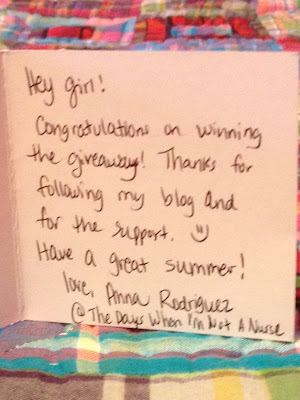 Hey girl!
Congratulations on winning
the giveaway! Thanks for
following my blog and
for the support. :)
Have a great summer!
love, Anna Rodriguez
@ The Days When I'm Not A Nurse